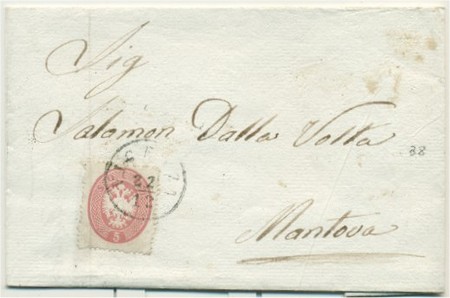 Sig
Salamon Dalla Volta
38
Mantova
5